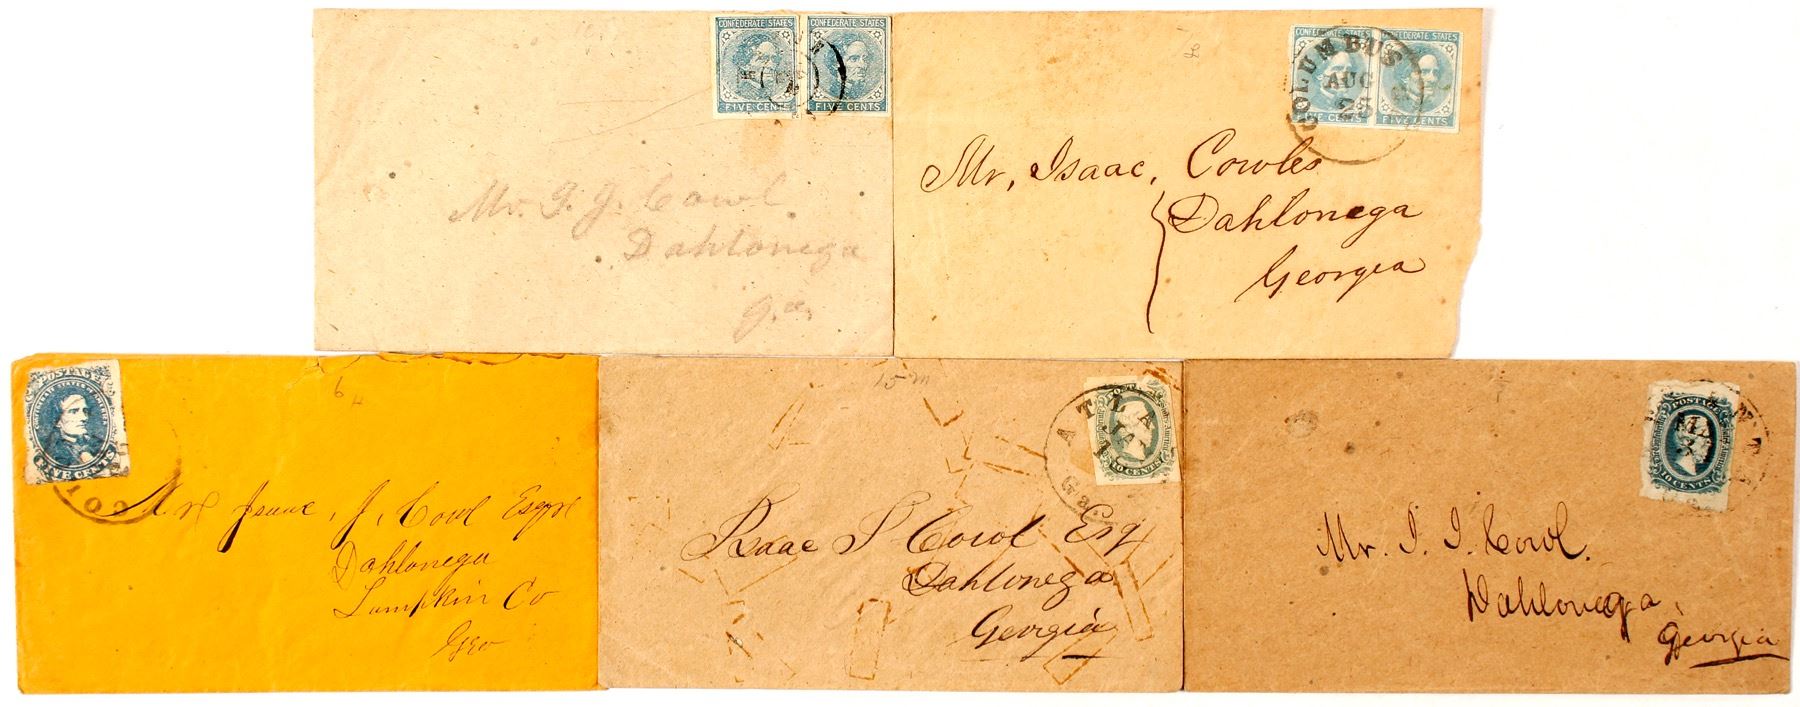 CONFEDERATE STATES
FIVE CENTS
CONFEDERATE STATES
FIVE CENTS
Mr. I. J. Cowl.
Dahlonega
CONFEDERATE STATES
FIVE CENTS
CONFEDERATE STATES
FIVE CENTS
COLUMBUS
AUG
25
Mr, Isaac, Cowles
Dahlonega
Georgia
POSTAGE
FIVE CENTS
COL
6
Isaac, J, Cowl Esqr
Dahlonega
Lumpkin Co
Geo
15 m
10 CENTS
ATLA
JA
Ga
Isaac I Cowl Esq
Dahlonega
Georgia
POSTAGE
10 CENTS
Mr. I. I. Cowl.
Dahlonega,
Georgia